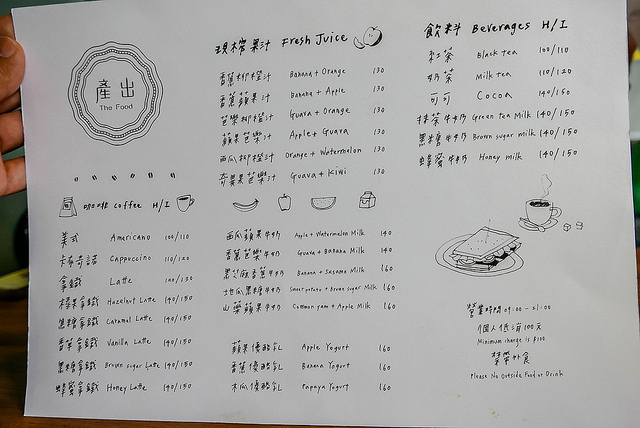 產出
The Food
咖啡 Coffee H/I
美式 Americano 100/110
卡布奇諾 Cappuccino 110/120
拿鐵 Latte 120/130
榛果拿鐵 Hazelnut Latte 140/150
焦糖拿鐵 Caramel Latte 140/150
香草拿鐵 Vanilla Latte 140/150
黑糖拿鐵 Brown sugar Latte 140/150
蜂蜜拿鐵 Honey Latte 140/150
現榨果汁 Fresh Juice
香蕉柳橙汁 Banana + Orange 130
香蕉蘋果汁 Banana + Apple 130
芭樂柳橙汁 Guava + Orange 130
蘋果芭樂汁 Apple + Guava 130
西瓜柳橙汁 Orange + Watermelon 130
奇異果芭樂汁 Guava + Kiwi 130
西瓜蘋果牛奶 Apple + Watermelon Milk 140
香蕉芭樂牛奶 Guava + Banana Milk 140
黑芝麻香蕉牛奶 Banana + Sesame Milk 160
地瓜黑糖牛奶 Sweet potato + Brown sugar Milk 160
山藥蘋果牛奶 Common yam + Apple Milk 160
蘋果優酪乳 Apple Yogurt 160
香蕉優酪乳 Banana Yogurt 160
木瓜優酪乳 Papaya Yogurt 160
飲料 Beverages H/I
紅茶 Black tea 100/110
奶茶 Milk tea 110/120
可可 Cocoa 140/150
抹茶牛奶 Green tea Milk 140/150
黑糖牛奶 Brown sugar milk 140/150
蜂蜜牛奶 Honey milk 140/150
營業時間 09:00 - 21:00
1個人低消100元
Minimum charge is $100
禁帶外食
Please No Outside Food or Drink